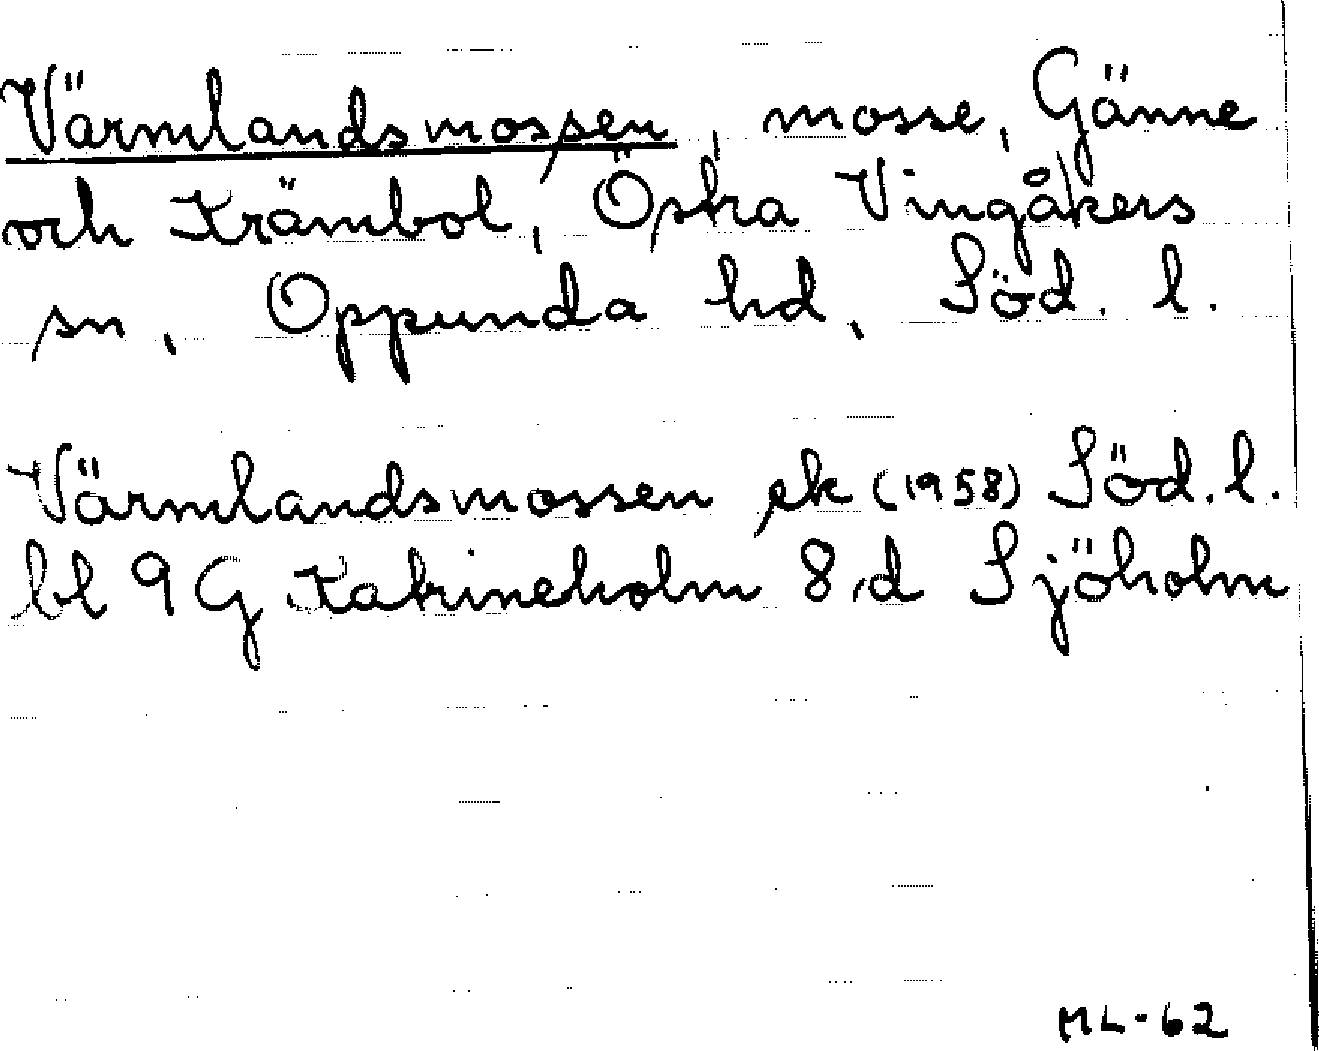 Värmlandsmossen, mosse, Gänne
och Krämbol, Östra Vingåkers
sn, Oppunda hd, Söd. l.
Värmlandsmossen ek (1958) Söd. l.
bl 9 G Katrineholm 8 d Sjöholm
ML-62